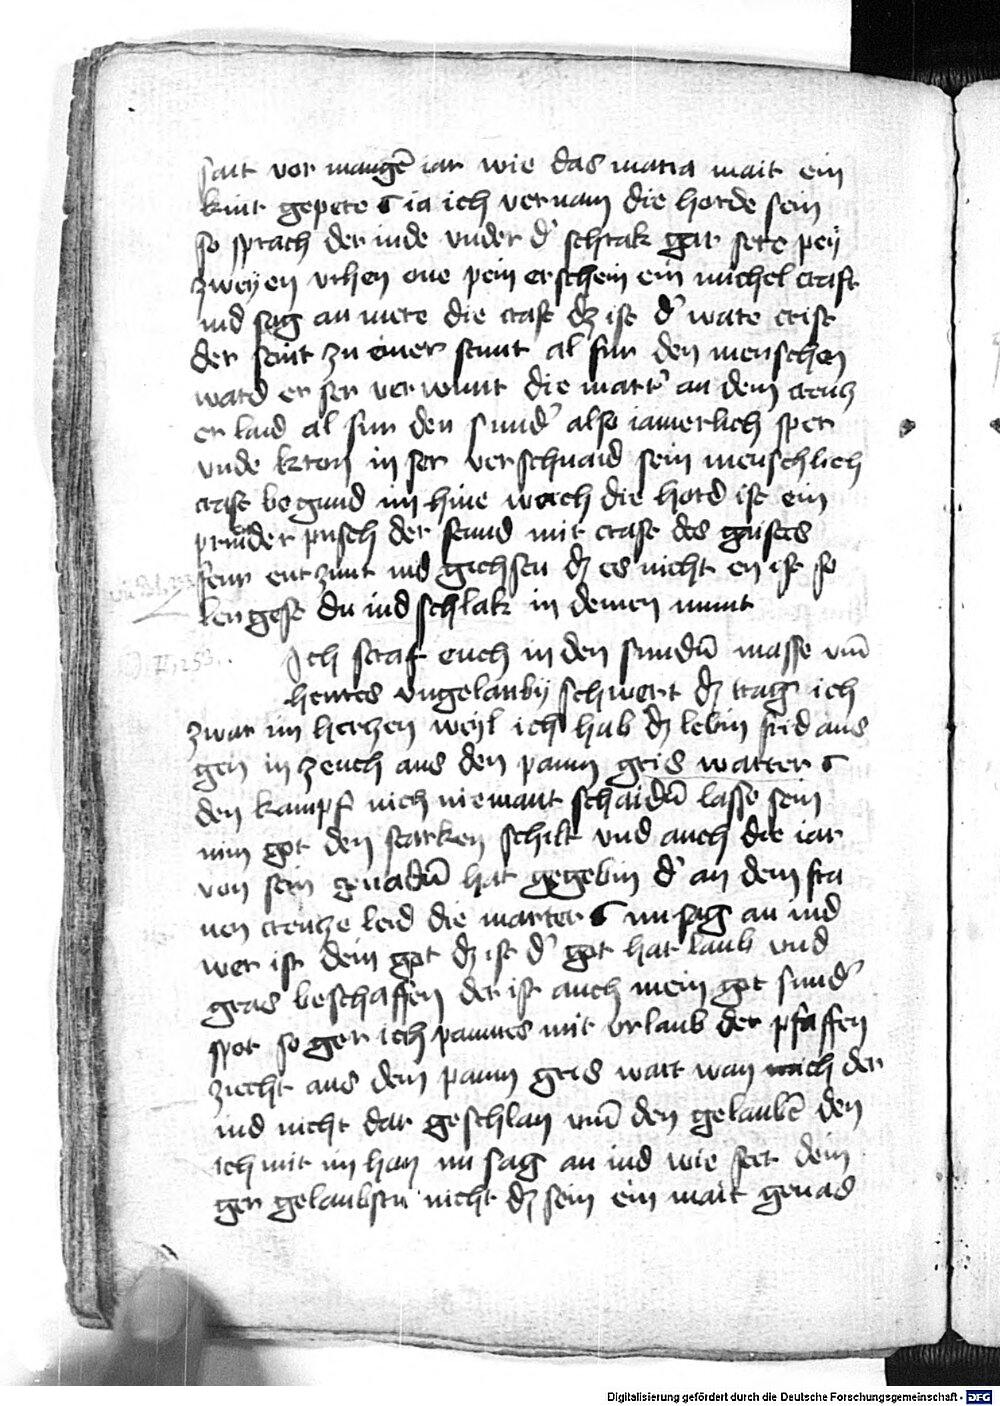 sait vor mangē iar wie das maria mait ein
kint gepere ia ich vernam die horde sein
so sprach der iude vnder d' schrak gar sere pey
zweyen vrhen one pein erschein ein michel craft
iud sag an mere die craft dz ist d' ware crist
der sent zu einer stunt al fur den menschen
ward er ser verwunt die mart' an dem creucz
er laid al fur den sund' also iamerlich sper
vnde kron in ser verschnaid sein menschlich
craft begund im hine wech die hord ist ein
pruder pusch der stund mit craft des gaistes
feur entzunt iud gichsen dz es nicht en ist so
lengest du iud schlak in deinen munt
Ich straf euch in den sundn̄ masse vm̄
hertes vngelauby schwert dz trag ich
zwar im herczen weyl ich hab dz lebin frid aus
gen in zeuch aus den paum gris warter
den kampf nich niemant schaidn̄ lasse sein
nim got den starken schilt vnd auch die iar
von sein genadn̄ hat gegebin d' an dem fra
nen creucze leid die marter nu sag an iud
wer ist dein got dz ist d' got hat laub vnd
gras beschaffen der ist auch mein got sund'
spot so ger ich pannes mit vrlaub der pfaffen
zucht aus dem paum gris wart wan mich der
iud nicht dar geschlan vm̄ den gelaubē den
ich mit im han nu sag an iud wie stet dein
ger gelaubstu nicht dz sein ein mait genas
Digitalisierung gefördert durch die Deutsche Forschungsgemeinschaft - DFG